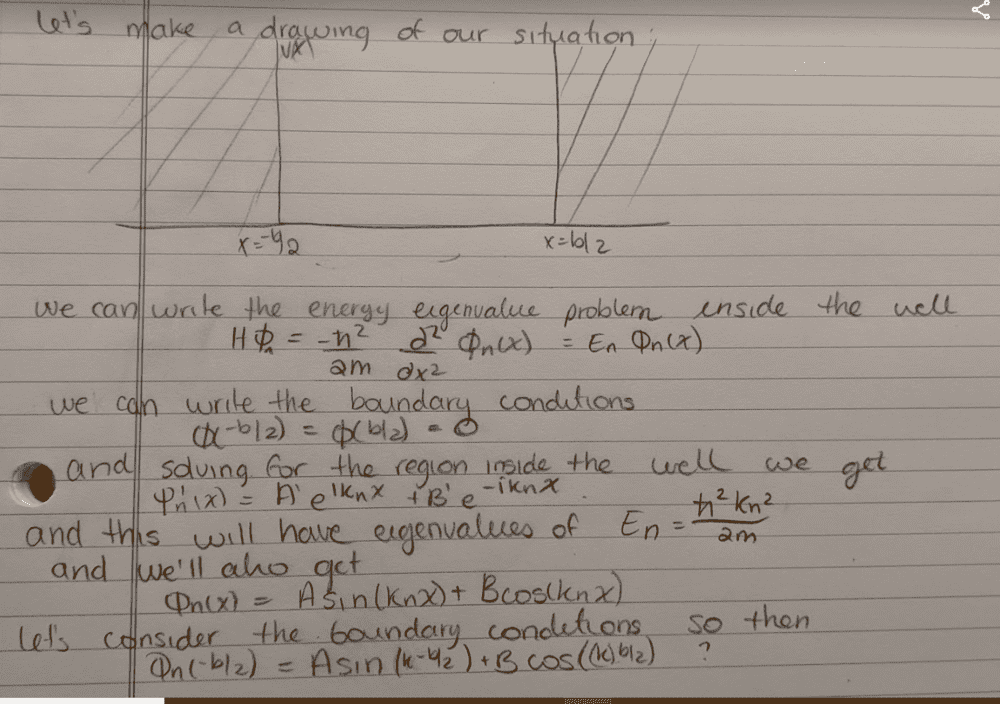 let's make a drawing of our situation:
V(x)
x=-b/2 x=b/2
we can write the energy eigenvalue problem inside the well
Hϕn = -ħ²/2m d²/dx² ϕn(x) = En ϕn(x)
we can write the boundary conditions
ϕ(-b/2) = ϕ(b/2) = 0
and solving for the region inside the well we get
φn'(x) = A' e^iknx + B' e^-iknx.
and this will have eigenvalues of En = ħ²kn²/2m
and we'll also get
ϕn(x) = A sin(knx) + B cos(knx)
let's consider the boundary conditions so then
ϕn(-b/2) = A sin(k-b/2) + B cos((k)b/2) ?